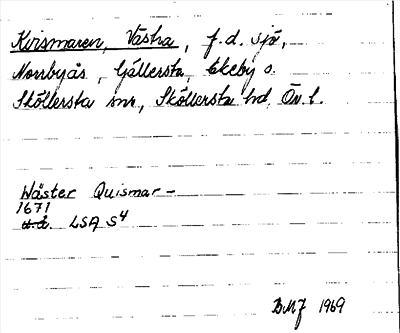 Kvismaren, Västra, f.d. sjö,
Norrbyås, Gällersta, Ekeby o.
Sköllersta snr, Sköllersta hd, Ör. l.
Wäster Quismar-
1671
u.å. LSA S4
BMJ 1969